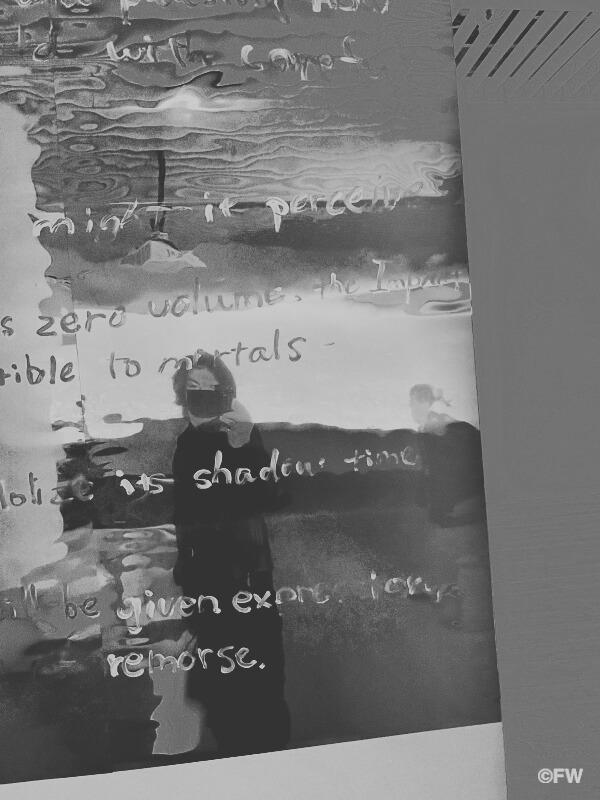 with comes
might it perceive
s zero volume. the Impact
tible to mortals -
its shadow time
will be given expressions
remorse.
©FW